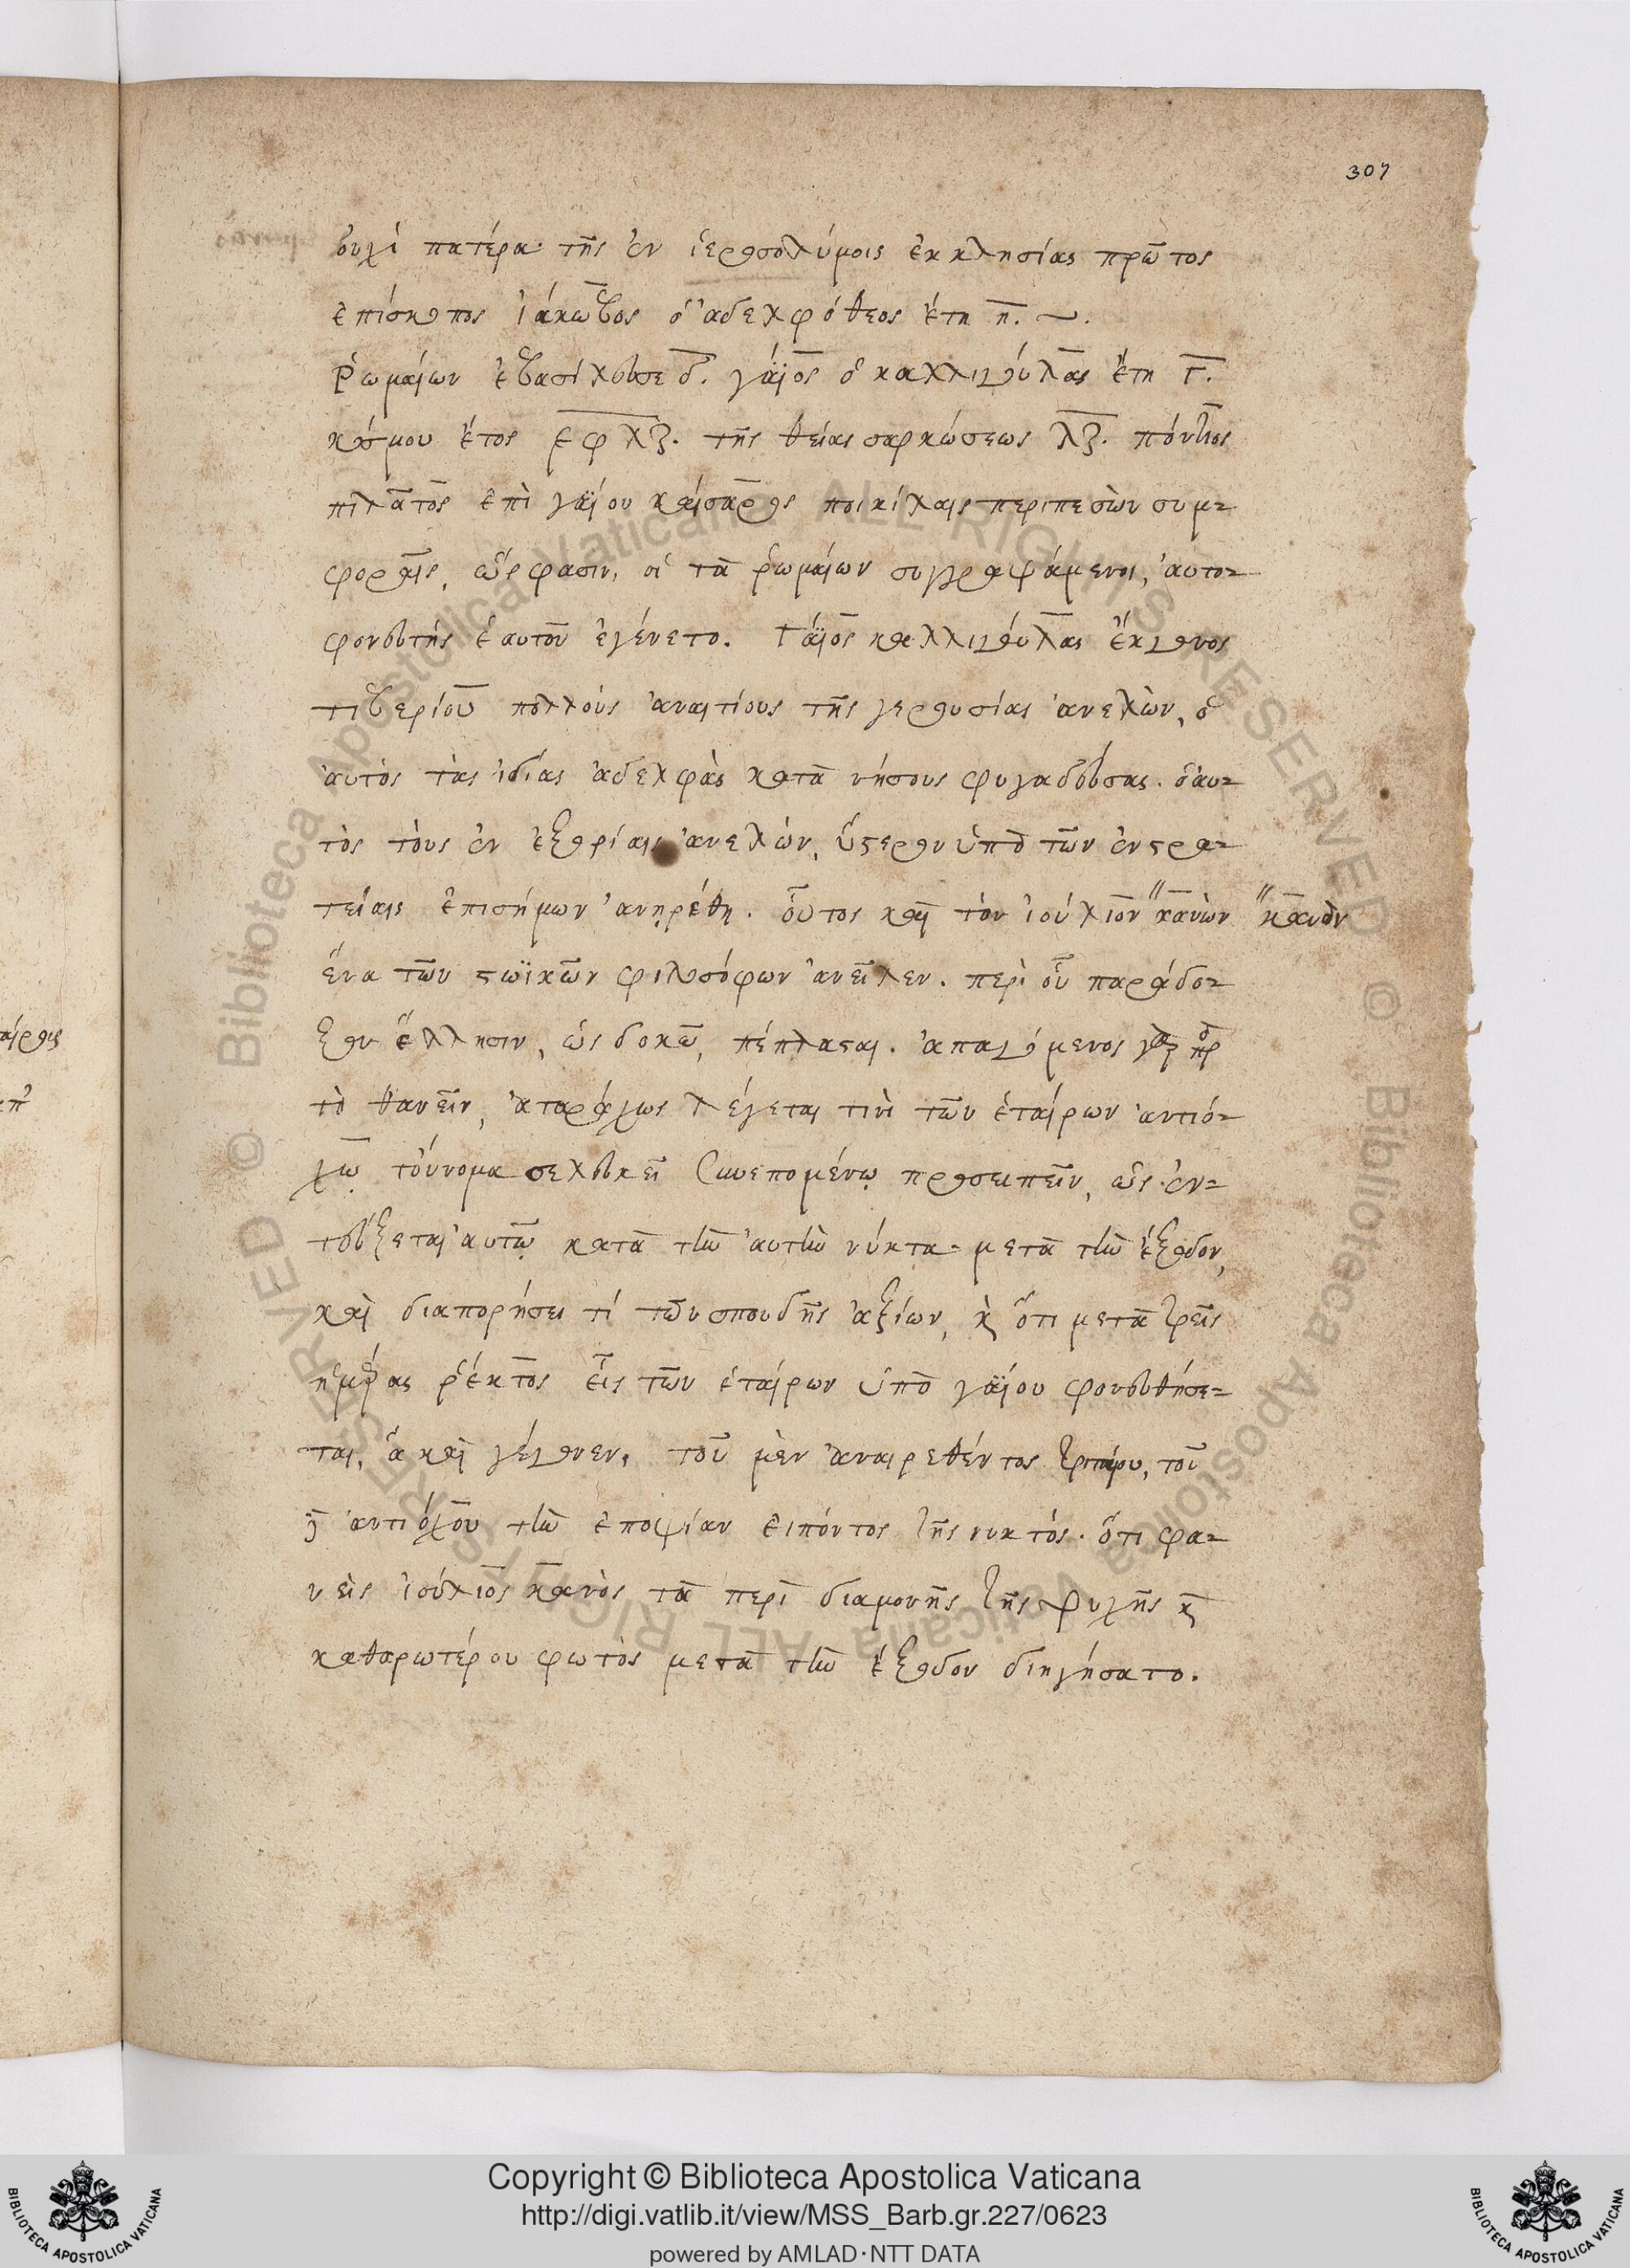 307
οὐχὶ πατέρα τῆς ἐν ἱεροσολύμοις ἐκκλησίας πρῶτος
ἐπίσκοπος ἰάκωβος ὁ ἀδελφόθεος ἔτη η.
Ῥωμαίων ἐβασίλευσε δ. γάϊος ὁ καλλιγούλας ἔτη Γ.
κόσμου ἔτος εφλζ. τῆς θείας σαρκώσεως λζ. πόντιος
πιλᾶτος ἐπὶ γαΐου καίσαρος ποικίλαις περιπεσὼν συμ-
φοραῖς, ὥς φασιν, οἱ τὰ ῥωμαίων συγγραψάμενοι, αὐτο-
φονευτὴς ἑαυτοῦ ἐγένετο. Γάϊος καλλιγούλας ἔκγονος
τιβερίου πολλοὺς ἀναιτίους τῆς γερουσίας ἀνελὼν, ὁ
αὐτὸς τὰς ἰδίας ἀδελφὰς κατὰ νήσους φυγαδεύσας. ὁ αὐ-
τὸς τοὺς ἐν ἐξορίαις ἀνελὼν, ὕστερον ὑπὸ τῶν ἐν στρα-
τείαις ἐπισήμων ἀνῃρέθη. οὗτος καὶ τὸν ἰούλιον "κανὼν "κανὸν
ἕνα τῶν στωϊκῶν φιλοσόφων ἀνεῖλεν. περὶ οὗ παράδο-
ξον ἕλλησιν, ὡς δοκῶ, πέπλασται. ἀπαγόμενος γὰρ πρὸς
τὸ θανεῖν, ἀταράχως λέγεται τινὶ τῶν ἑταίρων ἀντιό-
χῳ τοὔνομα σελευκεῖ συνεπομένῳ προσειπεῖν, ὡς ἐν-
τεύξεται αὐτῷ κατὰ τὴν αὐτὴν νύκτα μετὰ τὴν ἔξοδον,
καὶ διαπορήσει τί τῶν σπουδῆς ἀξίων, κ ὅτι μετὰ τρεῖς
ἡμέρας ῥέκτος εἷς τῶν ἑταίρων ὑπὸ γαΐου φονευθήσε-
ται, ἃ καὶ γέγονεν, τοῦ μὲν ἀναιρεθέντος τριταίου, τοῦ
δ ἀντιόχου τὴν ἐποψίαν εἰπόντος τῆς νυκτός. ὅτι φα-
νεὶς ἰούλιος κανὸς τὰ περὶ διαμονῆς τῆς ψυχῆς κ
καθαρωτέρου φωτὸς μετὰ τὴν ἔξοδον διηγήσατο.
Copyright © Biblioteca Apostolica Vaticana
http://digi.vatlib.it/view/MSS_Barb.gr.227/0623
powered by AMLAD·NTT DATA